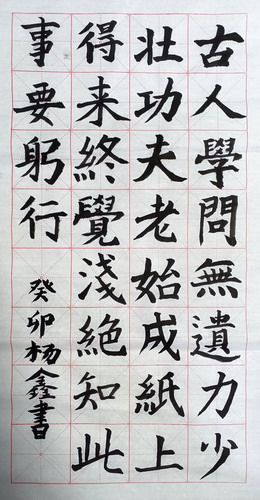 古人學問無遺力少
壯功夫老始成紙上
得来終覺淺絕知此
事要躬行
癸卯杨鑫書